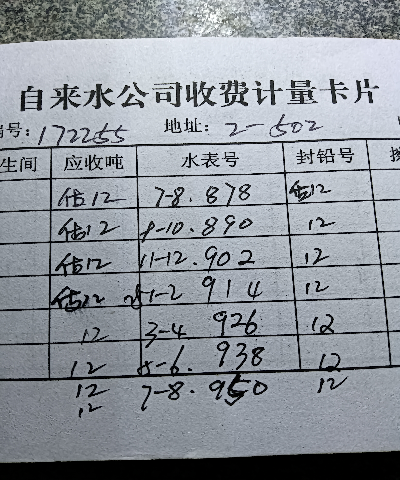 自来水公司收费计量卡片
编号: 172255 地址: 2-502
生间 应收吨 水表号 封铅号
估12 7-8. 878 估12
估12 9-10. 890 12
估12 11-12. 902 12
估12 1-2 914 12
12 3-4 926 12
12 5-6. 938 12
12 7-8. 950 12
12